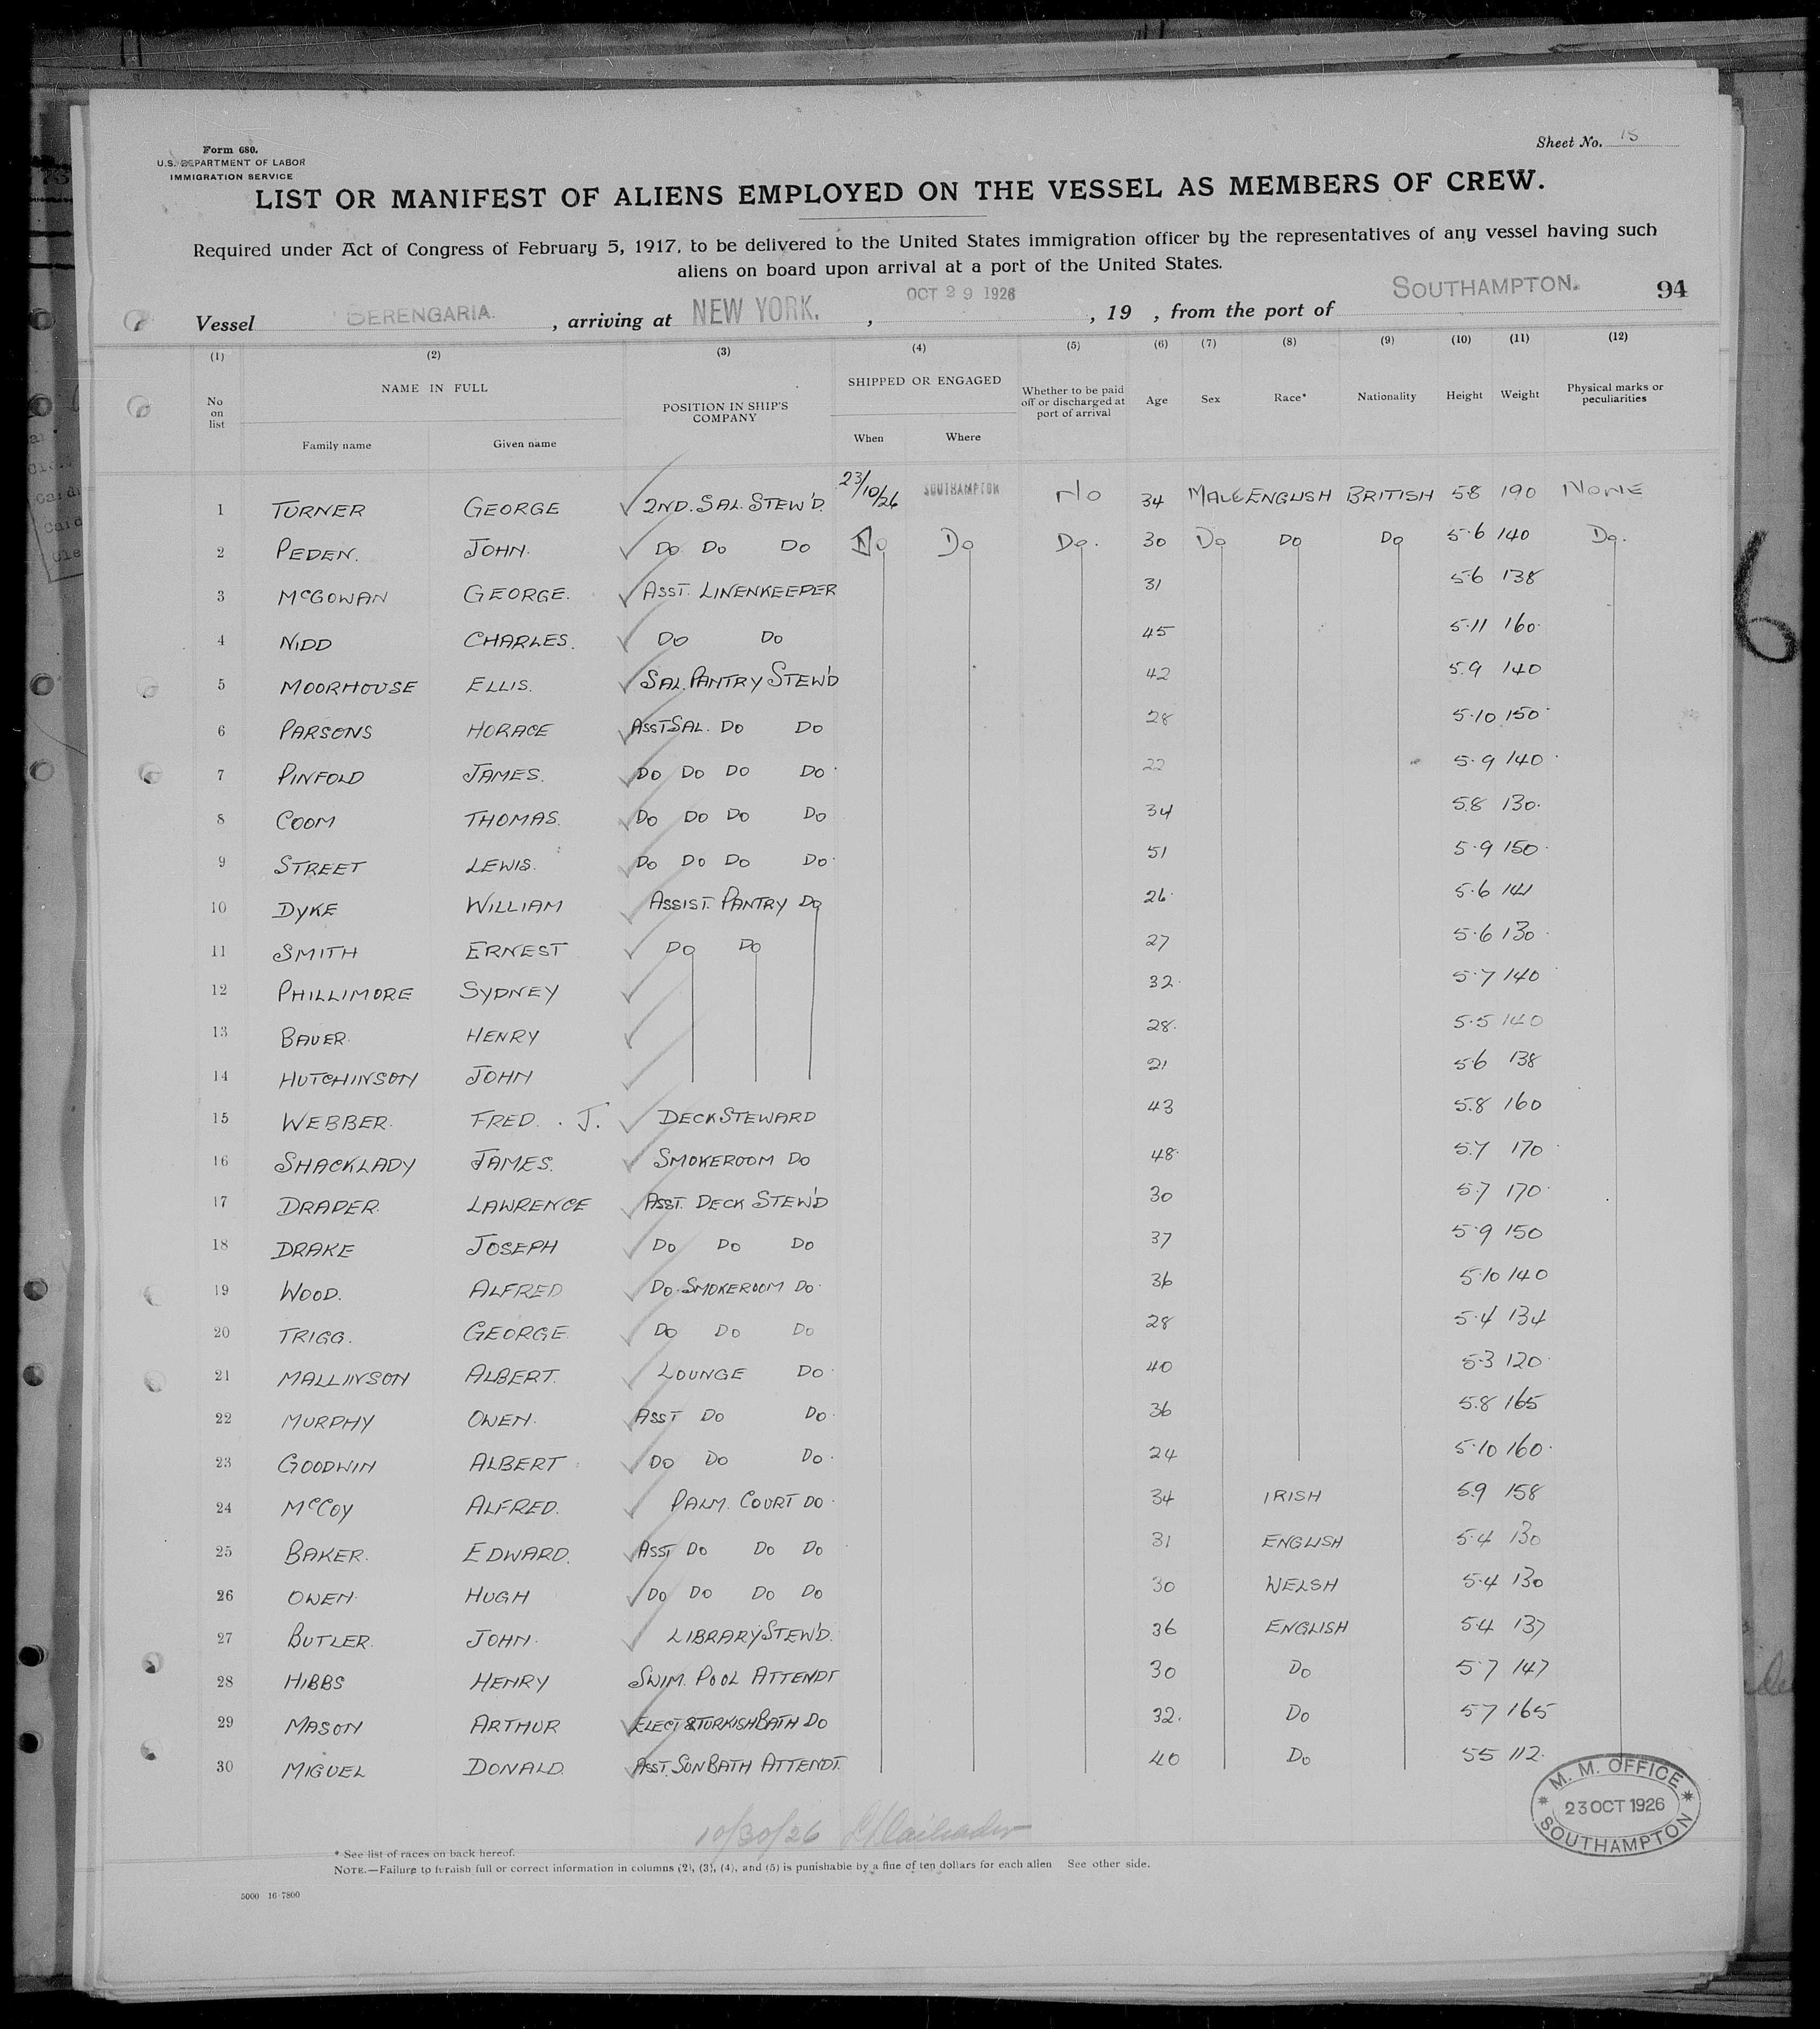 Form 680.
U.S. DEPARTMENT OF LABOR
IMMIGRATION SERVICE
Sheet No. 15
LIST OR MANIFEST OF ALIENS EMPLOYED ON THE VESSEL AS MEMBERS OF CREW.
Required under Act of Congress of February 5, 1917, to be delivered to the United States immigration officer by the representatives of any vessel having such
aliens on board upon arrival at a port of the United States.
Vessel BERENGARIA. , arriving at NEW YORK. , OCT 29 1926 , 19 , from the port of SOUTHAMPTON. 94
(1) (2) (3) (4) (5) (6) (7) (8) (9) (10) (11) (12)
No on list NAME IN FULL Family name Given name POSITION IN SHIP'S COMPANY SHIPPED OR ENGAGED When Where Whether to be paid off or discharged at port of arrival Age Sex Race* Nationality Height Weight Physical marks or peculiarities
1 TURNER GEORGE 2ND. SAL. STEW'D. 23/10/26 SOUTHAMPTON No 34 MALE ENGLISH BRITISH 5.8 190 NONE
2 PEDEN. JOHN. Do Do Do Do Do Do. 30 Do Do Do 5.6 140 Do.
3 McGOWAN GEORGE. ASST. LINENKEEPER 31 5.6 138
4 NIDD CHARLES. Do Do 45 5.11 160.
5 MOORHOUSE ELLIS. SAL. PANTRY STEW'D 42 5.9 140
6 PARSONS HORACE ASST SAL. Do Do 28 5.10 150
7 PINFOLD JAMES. Do Do Do Do. 22 5.9 140
8 COOM THOMAS. Do Do Do Do 34 5.8 130.
9 STREET LEWIS. Do Do Do Do. 51 5.9 150.
10 DYKE WILLIAM ASSIST. PANTRY Do 26. 5.6 141
11 SMITH ERNEST Do Do 27 5.6 130.
12 PHILLIMORE SYDNEY 32. 5.7 140
13 BAUER. HENRY 28. 5.5 140
14 HUTCHINSON JOHN 21 5.6 138
15 WEBBER. FRED. . J. DECK STEWARD 43 5.8 160
16 SHACKLADY JAMES. SMOKEROOM Do 48. 5.7 170
17 DRAPER. LAWRENCE ASST. DECK STEW'D 30 5.7 170.
18 DRAKE JOSEPH Do Do Do 37 5.9 150
19 WOOD. ALFRED Do. SMOKEROOM Do. 36 5.10 140
20 TRIGG. GEORGE. Do Do Do 28 5.4 134
21 MALLINSON ALBERT. LOUNGE Do. 40 5.3 120.
22 MURPHY OWEN. ASST Do Do. 36 5.8 165
23 GOODWIN ALBERT Do Do Do. 24 5.10 160.
24 McCOY ALFRED. PALM. COURT Do. 34 IRISH 5.9 158
25 BAKER. EDWARD. ASST Do Do Do 31 ENGLISH 5.4 130
26 OWEN. HUGH Do Do Do Do 30 WELSH 5.4 130
27 BUTLER. JOHN. LIBRARY STEW'D. 36 ENGLISH 5.4 137
28 HIBBS HENRY SWIM. POOL ATTENDT 30 Do 5.7 147
29 MASON ARTHUR ELECT & TURKISH BATH Do 32. Do 5.7 165
30 MIGUEL DONALD. ASST. SUN BATH ATTENDT. 40 Do 5.5 112.
10/30/26
M. M. OFFICE
23 OCT 1926
SOUTHAMPTON
* See list of races on back hereof.
NOTE.—Failure to furnish full or correct information in columns (2), (3), (4), and (5) is punishable by a fine of ten dollars for each alien See other side.
5000 16-7800
6